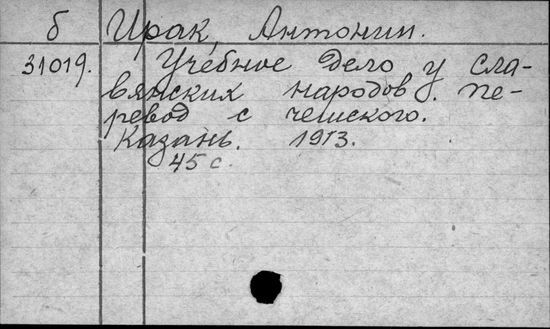 б Ирак, Антонин.
31019. Учебное дело у сла-
вянских народов. Пе-
ревод с чешского.
Казань. 1913.
45 с.